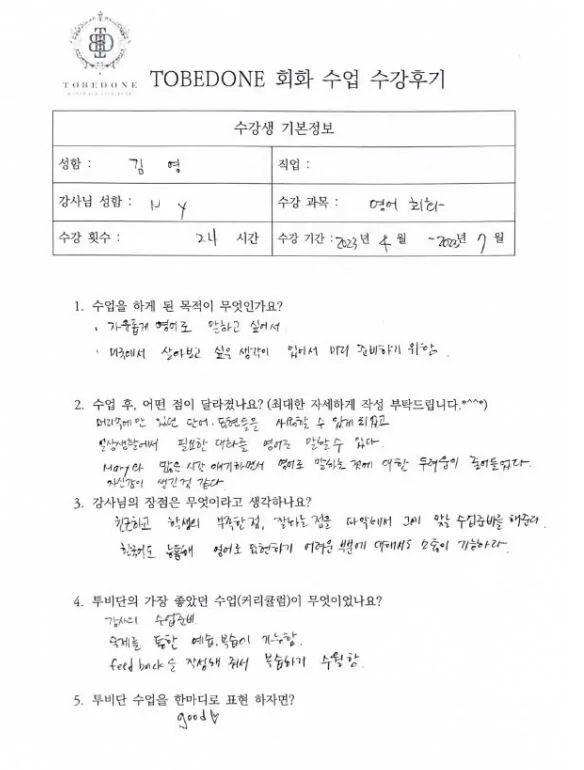 TOBEDONE
TOBEDONE 회화 수업 수강후기
수강생 기본정보
성함 : 김 영
직업 :
강사님 성함 : M y
수강 과목 : 영어 회화
수강 횟수 : 24 시간
수강 기간 : 2023년 4 월 ~2023년 7 월
1. 수업을 하게 된 목적이 무엇인가요?
· 자유롭게 영어로 말하고 싶어서
· 미국에서 살아보고 싶은 생각이 있어서 미리 준비하기 위함.
2. 수업 후, 어떤 점이 달라졌나요? (최대한 자세하게 작성 부탁드립니다.*^^*)
머리속에만 있던 단어, 표현들을 사용할 수 있게 되었고
일상생활에서 필요한 대화를 영어로 말할 수 있다.
Mary와 많은 시간 얘기하면서 영어로 말하는 것에 대한 두려움이 줄어들었다.
자신감이 생긴것 같다.
3. 강사님의 장점은 무엇이라고 생각하나요?
친근하고 학생의 부족한 점, 잘하는 점을 파악해서 그에 맞는 수업준비를 해준다.
한국어도 능통해 영어로 표현하기 어려운 부분에 대해서도 소통이 가능하다.
4. 투비단의 가장 좋았던 수업(커리큘럼)이 무엇이었나요?
강사의 수업준비.
숙제를 통한 예습, 복습이 가능함.
feed back을 작성해 줘서 복습하기 수월함.
5. 투비단 수업을 한마디로 표현 하자면?
good♡